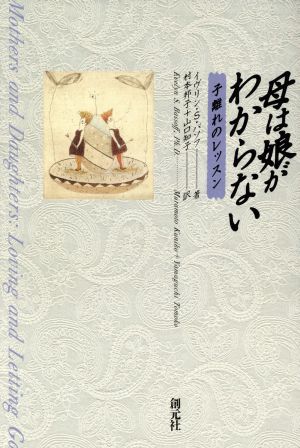 母は娘が
わからない
子離れのレッスン
イヴリン・S・バソフ━━著
村本邦子+山口知子━━訳
Evelyn S. Bassoff, Ph.D.
Muramoto Kuniko+Yamaguchi Tomoko
Mothers and Daughters: Loving and Letting Go
創元社